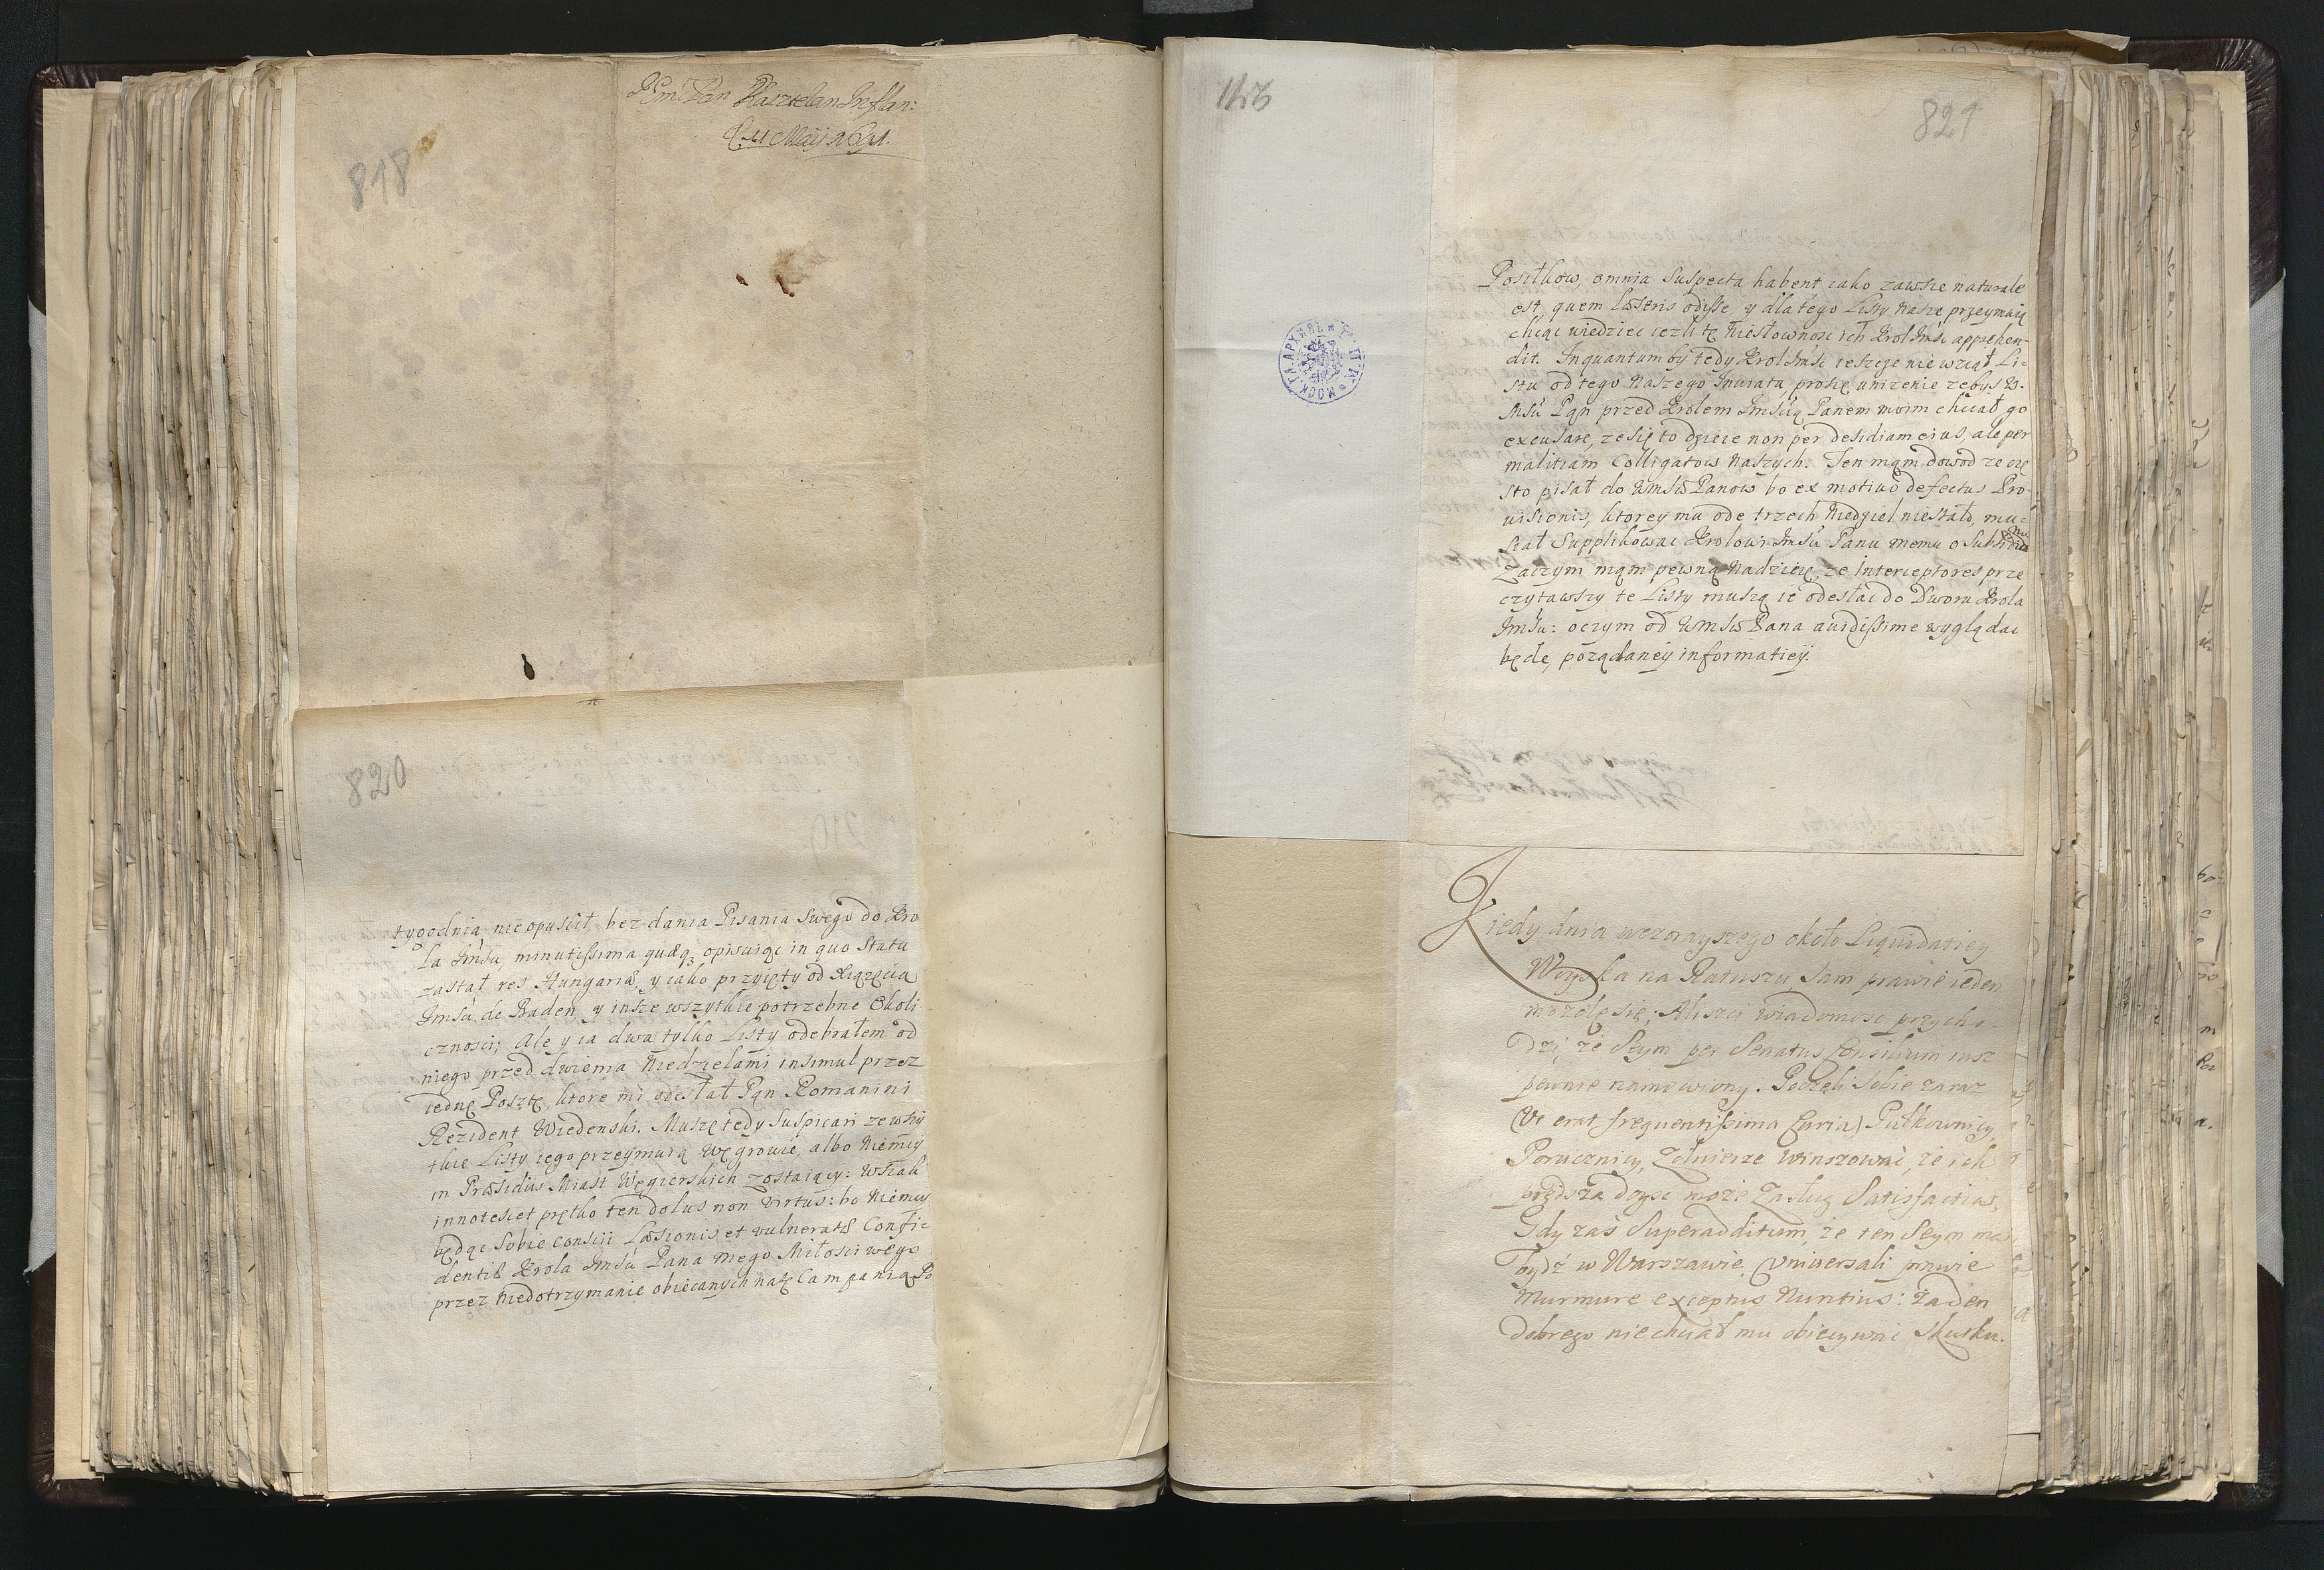 818
JMć Pan Kasztelan Inflan:
Maij 1691.
820
tygodnia nie opuscił, bez dania Pisania Swego do Kro
la JMśći, minutissima quæq3 opisuiąc in quo Statu
zastał res Hungariæ, y iako przyięty od Xiążęcia
JMśći de Baden, y insze wszytkie potrzebne Okoli
cznosci; Ale y ia dwa tylko Listy odebrałem od
niego przed dwiema Niedzielami insimul przez
iednę Posztę, ktore mi odesłał Pan Romanini
Rezident Wiedenski. Muszę tedy Suspicari ze wszy
tkie Listy iego przeymuią Węgrowie, albo Niemcy
in Præsidiis Miast Węgierskich zostaiący: wszak
innotescet prętko ten dolus non virtus: bo Niemcy
będąc Sobie conscii Læsionis et vulneratæ Confi=
dentiæ Krola JMśći Pana mego Miłosciwego
przez Niedotrzymanie obiecanych na tę Campanią Po
821
Posiłkow, omnia Suspecta habent, iako zawsze naturale
est, quem læseris odisse, y dla tego Listy Nasze przeymuią
chcąc wiedziec iezli tę Niesłownosc ich Krol JMśc apprehen
dit. Inquantum by tedy Krol JMśc ieszcze nie wziął Li=
stu od tego Naszego Inviata, proszę unizenie zebys W.
MśćPan przed Krolem JMśćią Panem moim chciał go
excusare, ze się to dzieie non per desidiam eius, ale per
malitiam Colligatow Naszych. Ten mam dowod ze czę
sto pisał do WMśćiow Panow bo ex motivo defectus Pro
visionis, ktorey mu ode trzech Niedziel niestało, mu=
siał Supplikowac Krolowi JMśći Panu memu o Subsidium
Zaczym mam pewną Nadzieię, ze interceptores prze
czytawszy te Listy muszą ie odesłac do Dworu Krola
JMśći: oczym od WMśći Pana avidissime wyglądac
będę, pożądaney informatiey.
МОСК. ГЛ. АРХИВЪ М. И. Д.
Kiedy dnia wczorayszego około Liquidatiey
Woyska na Ratuszu Sam prawie ieden
mozolę się; Aliszci wiadomosc przycho=
dzi, że Seym per Senatus Consilium iusz
pewnie namowiony. Poczęli Sobie zaraz
(Ut erat frequentissima Curia) Pułkownicy,
Porucznicy, Zołnierze winszować, że ich
prędsza doysc może Zasług Satisfactia,
Gdy zaś Superadditum, że ten Seym ma
bydź w Warszawie, Universali prawie
Murmure exceptus Nuntius: Żaden
dobrego niechciał mu obiecywać Skutku.